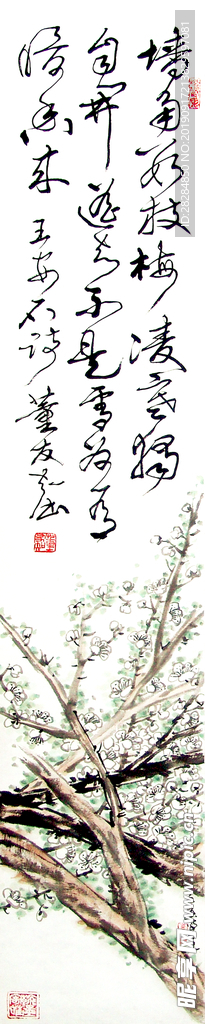 墙角数枝梅凌寒独
自开遥知不是雪为有
暗香来 王安石诗 董友知书
昵享网 www.nipic.cn